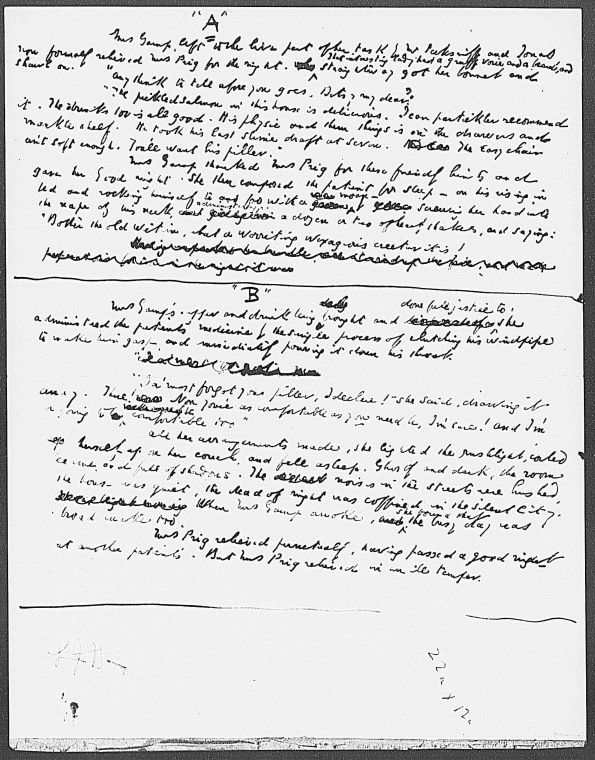 "A"
Mrs Gamp, left to the live part of her task & Mr Pecksniff and Jonas
now formally relieved Mrs Prig for the night. This interesting lady had a gruff voice and a beard, and
straightway got her bonnet and
shawl on.
"Anythink to tell afore you goes, Betsy my dear?"
"The pickled salmon in this house is delicious. I can partickler recommend
it. The drinks too is all good. His physic and them things is on the drawers and
mankleshelf. He took his last slime draft at seven. The easy chair
ain't soft enough. You'll want his piller."
Mrs Gamp thanked Mrs Prig for these friendly hints and
gave her good night. She then composed the patient for sleep - on his rising in
bed and rocking himself to and fro with a moan - screwing her hand into
the nape of his neck, administering a dozen or two of hearty shakes, and saying:
"Bother the old wictim, but a worriting wrayaging creetur it is!
"B"
Mrs Gamp's supper and drink being brought and done full justice to, she
administered the patient's medicine by the simple process of clutching his windpipe
to make him gasp, and immediately pouring it down his throat.
"I a'most forgot your piller, I declare!" she said, drawing it
away. "There! Now you're as comfortable as you need be, I'm sure! and I'm
a going to be comfortable too"
All her arrangements made, she lighted the rushlight, coiled
herself up on her couch and fell asleep. Ghostly and dark, the room
became, and full of shadows. The noises in the streets were hushed,
the house was quiet, the dead of night was coffined in the silent City.
When Mrs Gamp awoke, she found that the busy day was
broad awake too.
Mrs Prig relieved punctually, having passed a good night
at another patient's. But Mrs Prig relieved in an ill temper.